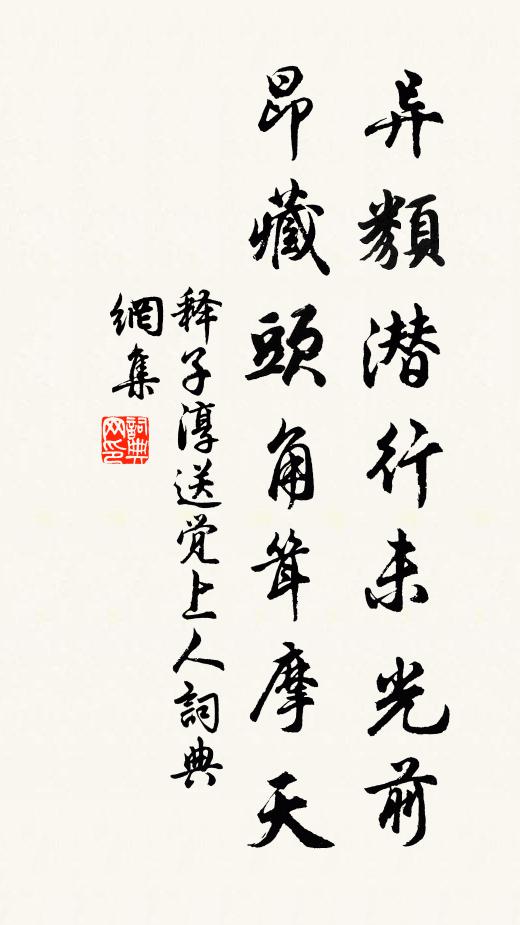 异類潜行未光前
昂藏頭角耸摩天
释子淳送觉上人詞典
網集
詞典
网印